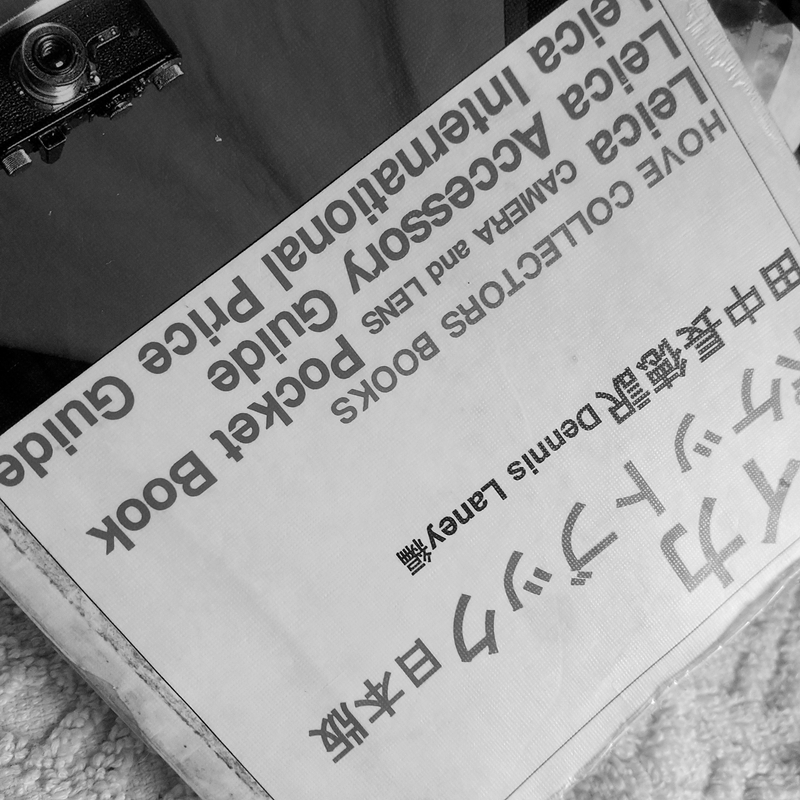 イカ
ケットブック 日本版
田中長徳訳 Dennis Laney編
HOVE COLLECTORS BOOKS
Leica CAMERA and LENS Pocket Book
Leica Accessory Guide
Leica International Price Guide